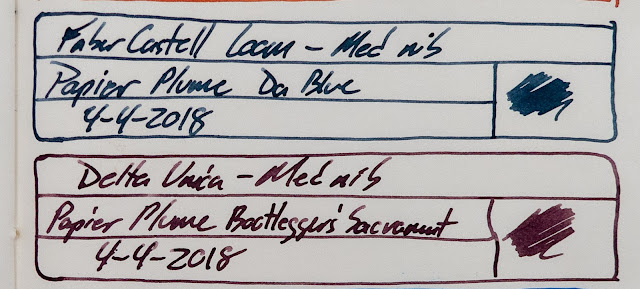 Faber Castell Loom - Med nib
Papier Plume Da Blue
4-4-2018
Delta Unica - Med nib
Papier Plume Bootlegger's Sacrament
4-4-2018